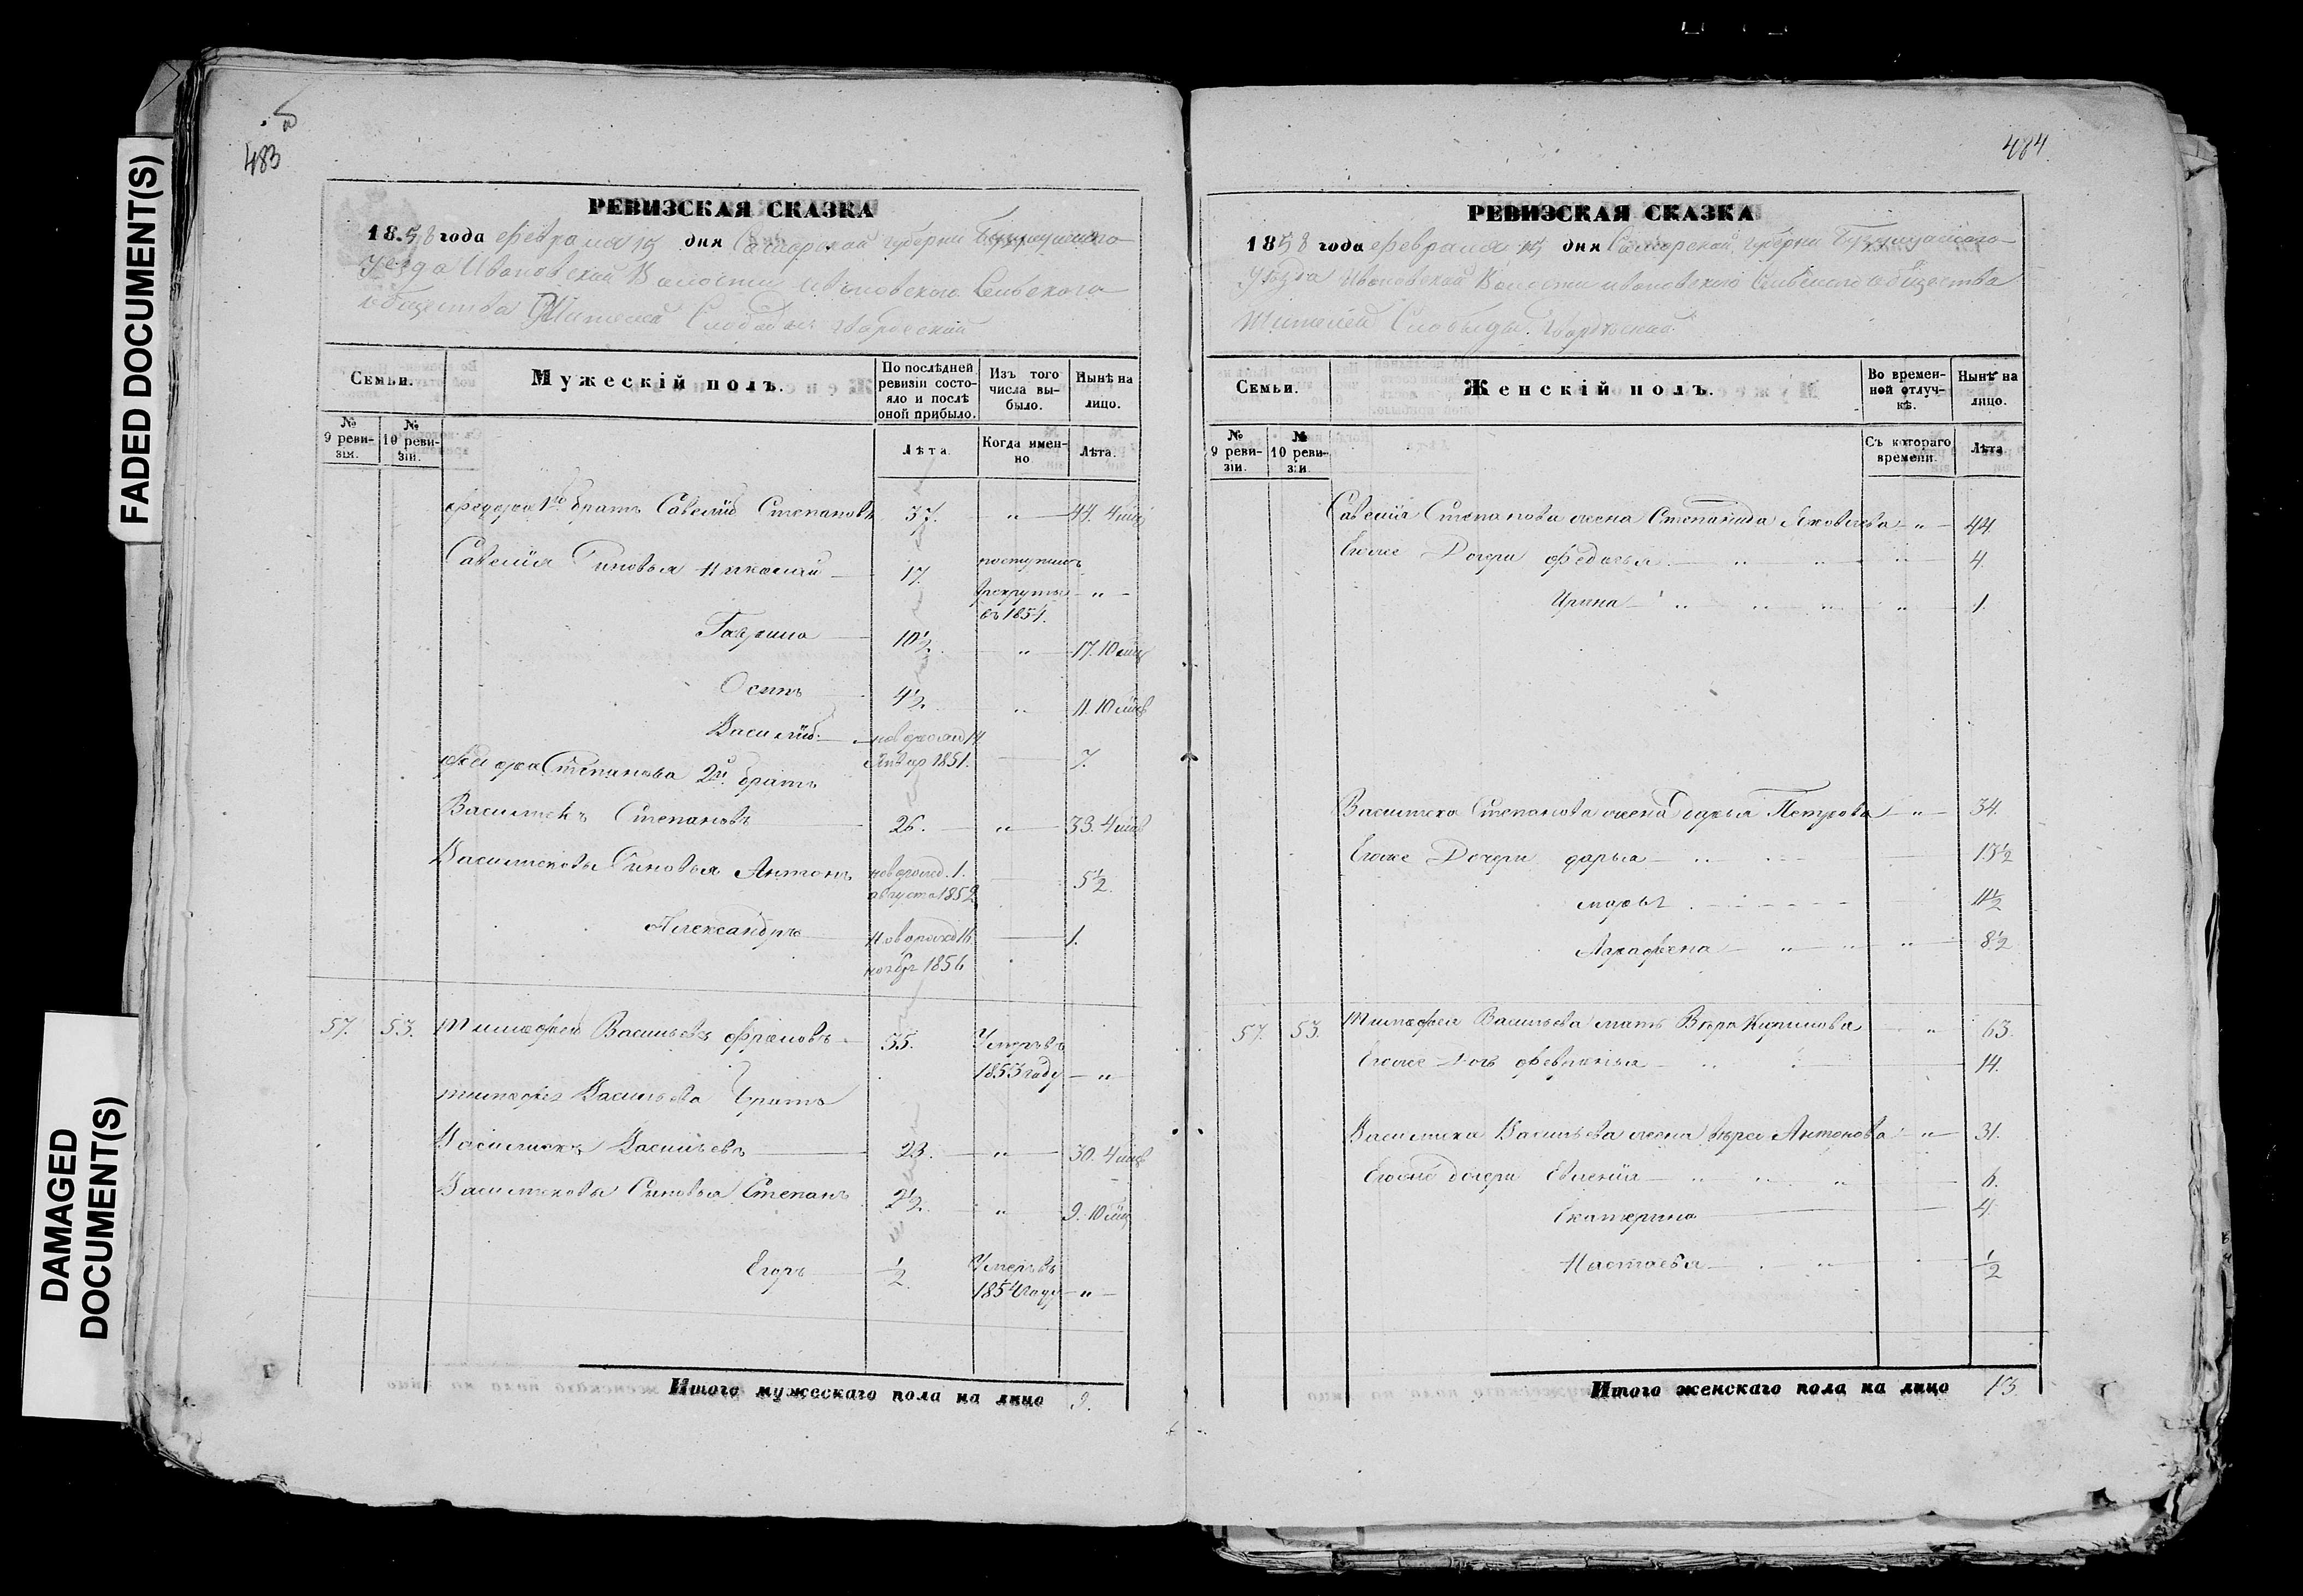 FADED DOCUMENT(S)
DAMAGED
DOCUMENT(S)
483
РЕВИЗСКАЯ СКАЗКА
1858 года февраля 15 дня Самарской губернии Бузулуцкаго
Уезда Ивановской Волости Ивановского Сельского
общества Жителей Слободы
Семьи.
Мужескій полъ.
По послѣдней
ревизіи состо-
яло и послѣ
оной прибыло.
Изъ того
числа вы-
было.
Нынѣ на
лицо.
№
9 реви-
зіи.
№
10 реви-
зіи.
Лѣта.
Когда имен-
но
Лѣта.
Федора 1й братъ Савелій Степановъ 37. " 44. 4 мѣс
Савелія Сыновья Николай 17. поступилъ
в рекруты "
въ 1854.
Гаврила 10½ " 17. 10 мѣс
Осипъ 4½ " 11. 10 мѣс
Василій новорожд 14
Январ 1851. 7.
Федора Степанова 2й братъ
Васильекъ Степановъ 26. " 33. 4 мѣс
Сыновья Антонъ новорожд. 1. 5½
августа 1852
Александръ новорожд 16 1.
ноябр 1856
57. 53. Тимофей Васильевъ Фроловъ 55. Умеръ въ
1853 году "
Тимофея Васильева братъ
Васильевъ 23. " 30. 4 мѣс
Сыновья Степанъ 2½ " 9. 10 мѣс
Егоръ ½ Умеръ въ
1854 году "
Итого мужескаго пола на лицо 9.
484
РЕВИЗСКАЯ СКАЗКА
1858 года февраля 15 дня Самарской губерни Бузулуцкаго
Уѣзда Ивановской Волости Ивановского Сельского общества
Жителей Слободы
Семьи.
Женскій полъ.
Во времен-
ной отлуч-
кѣ.
Нынѣ на
лицо.
№
9 реви-
зіи.
№
10 реви-
зіи
Съ котораго
времени.
Лѣта
Савелія Степанова жена Степанида Яковлева " 44.
Егоже Дочери Федосья " " " 4.
Ирина " " " " 1.
Степанова жена Дарья Петрова " 34.
Егоже Дочери Дарья 13½
Марья 11½
Аграфена " " " 8½
57. 53. Тимофея Васильева мать Вѣра Кирилова " 63.
Егоже Дочь Февронья 14.
Васильева жена Антонова " 31.
Егоже дочери 6.
Екатерина 4.
Настасья " ½
Итого женскаго пола на лицо 13.